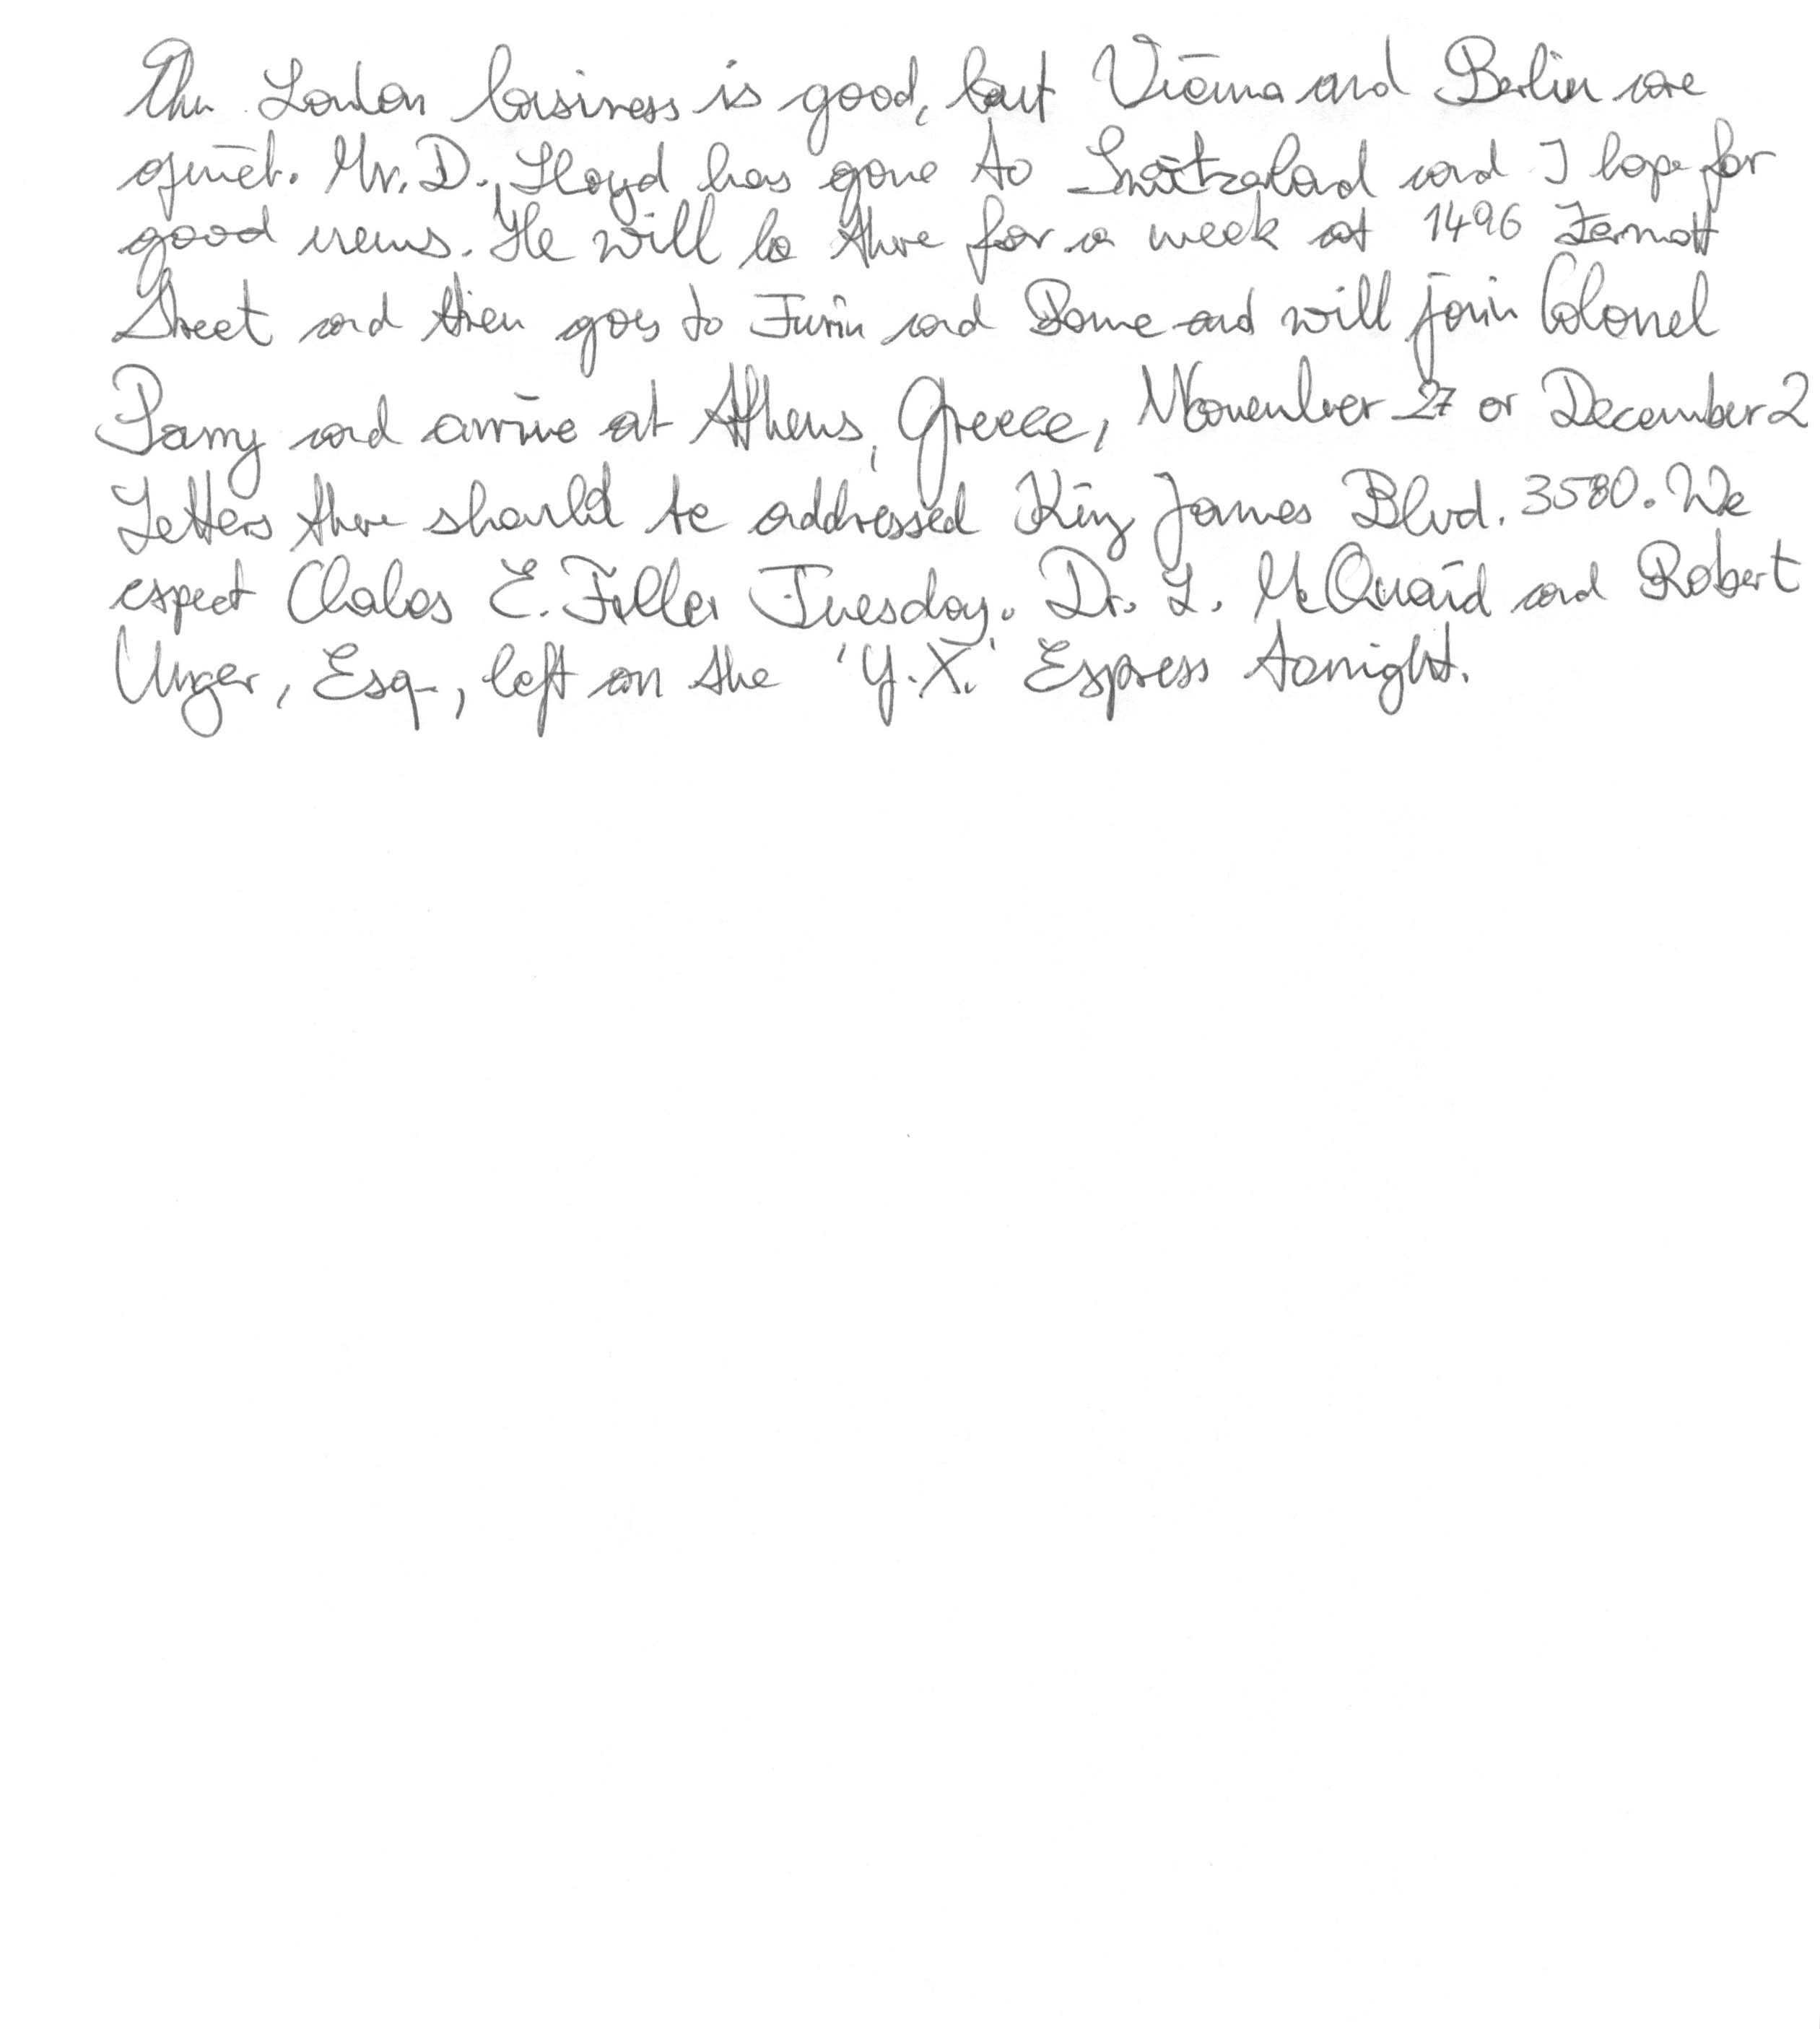 Our London business is good, but Vienna and Berlin are
quiet. Mr. D. Lloyd has gone to Switzerland and I hope for
good news. He will be there for a week at 1496 Zermott
Street and then goes to Turin and Rome and will join Colonel
Parry and arrive at Athens, Greece, November 27 or December 2
Letters there should be addressed King James Blvd. 3580. We
expect Chales E. Fuller Tuesday. Dr. L. McQuaid and Robert
Unger, Esq., left on the 'Y.X.' Express tonight.